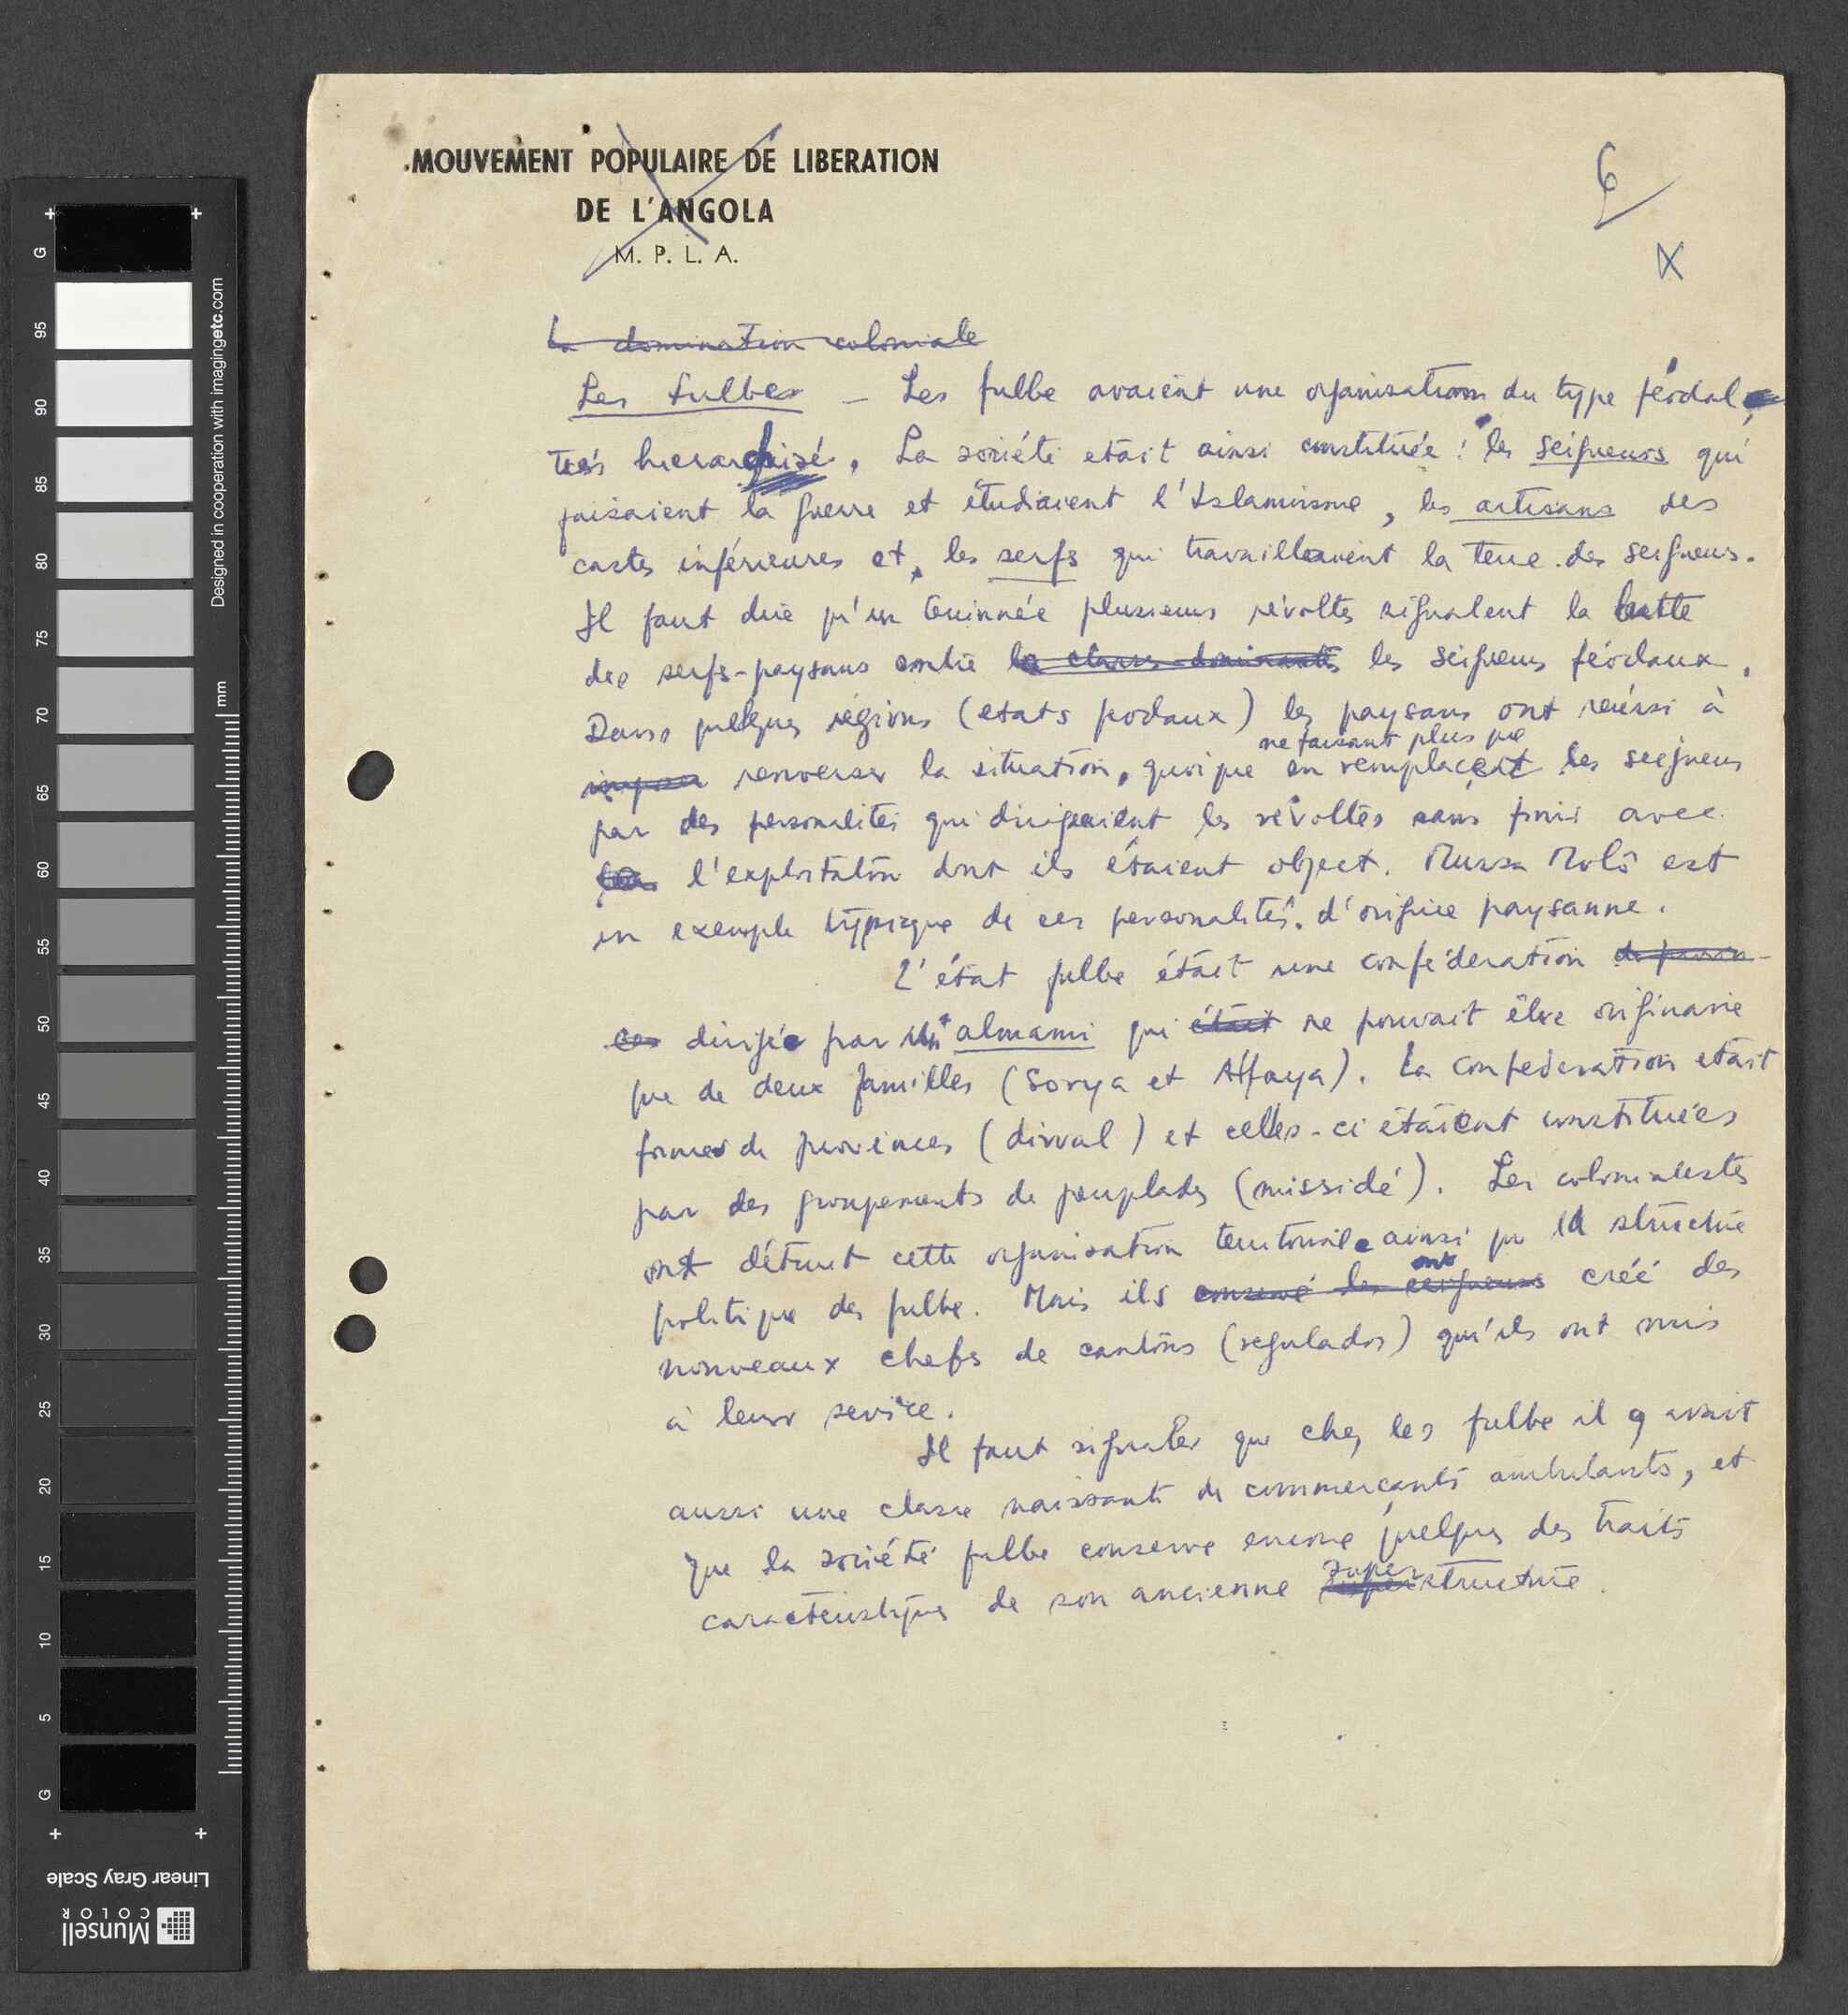 MOUVEMENT POPULAIRE DE LIBERATION
DE L'ANGOLA
M. P. L. A.
6
X
La domination coloniale
Les fulbes - Les fulbe avaient une organisation du type féodal,
très hierarchisé. La société etait ainsi constituée : les seigneurs qui
faisaient la guerre et étudiaient l'Islamisme, les artisans des
castes inférieures et les serfs qui travaillaient la terre des seigneurs.
Il faut dire qu'en Guinnée plusieurs révoltes signalent la lutte
des serfs-paysans contre la classe dominante les seigneurs féodaux.
Dans quelques régions (etats feodaux) les paysans ont réussi à
ne faisant plus que
imposer renverser la situation, quoique en remplaçant les seigneurs
par des personalités qui dirigeaient les révoltes sans finir avec
l'exploitation dont ils étaient object. Mussa Molô est
un exemple typique de ces personalités d'origine paysanne.
L'état fulbe était une confédération de provin-
ces dirigée par un almami qui était ne pouvait être originaire
que de deux familles (Sorya et Alfaya). La confédération etait
formée de provinces (divval) et celles-ci étaient constituées
par des groupements de peuplades (missidé). Les colonialistes
ont détruit cette organisation territoriale ainsi que la structure
ont
politique des fulbe. Mais ils conservé les seigneurs créé des
nouveaux chefs de cantons (regulados) qu'ils ont mis
à leur service.
Il faut signaler que chez les fulbe il y avait
aussi une classe naissante de commerçants ambulants, et
que la société fulbe conserve encore quelques des traits
super
caractéristiques de son ancienne structure.
G
95
90
85
80
75
70
65
60
55
50
45
40
35
30
25
20
15
10
5
G
mm
Designed in cooperation with imagingetc.com
Linear Gray Scale
Munsell
COLOR